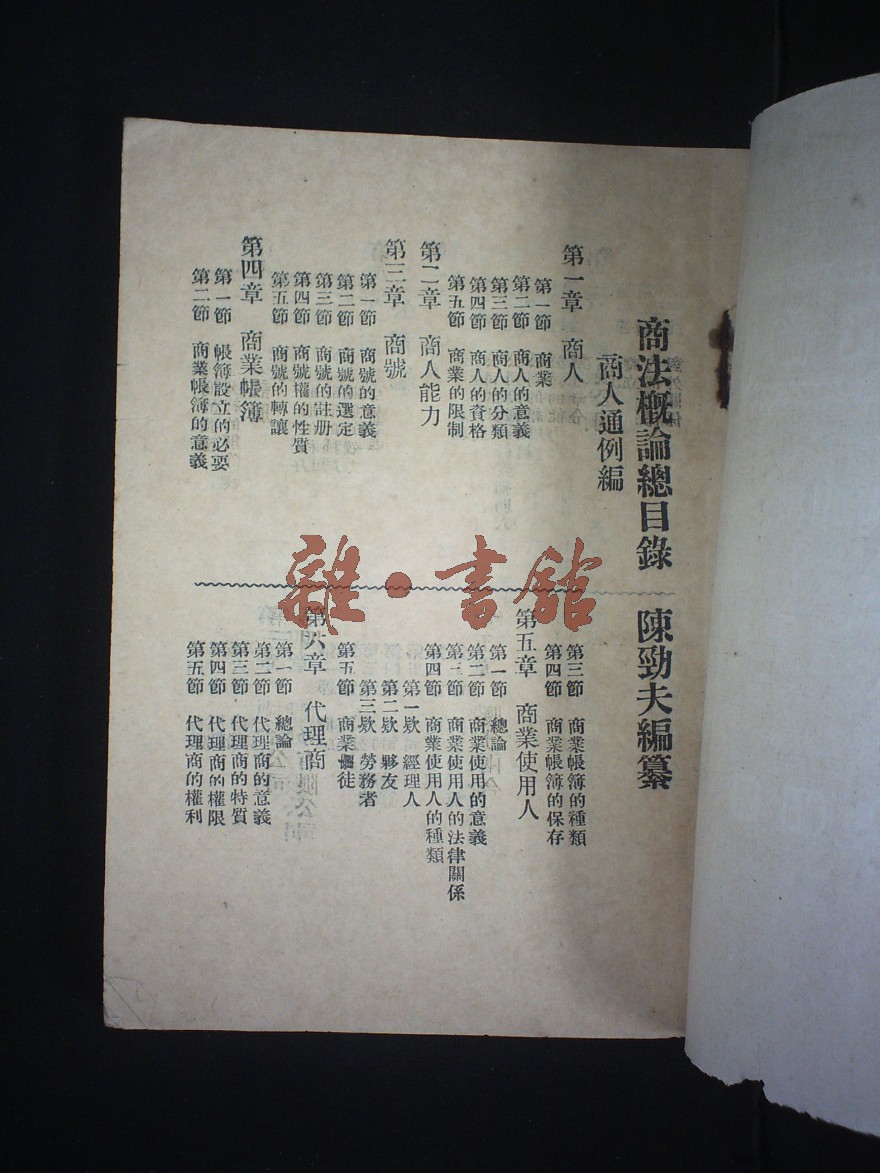 商法概論總目錄
陳勁夫編纂
商人通例編
第一章 商人
第一節 商業
第二節 商人的意義
第三節 商人的分類
第四節 商人的資格
第五節 商業的限制
第二章 商人能力
第三章 商號
第一節 商號的意義
第二節 商號的選定
第三節 商號的註册
第四節 商號權的性質
第五節 商號的轉讓
第四章 商業帳簿
第一節 帳簿設立的必要
第二節 商業帳簿的意義
第三節 商業帳簿的種類
第四節 商業帳簿的保存
第五章 商業使用人
第一節 總論
第二節 商業使用的意義
第三節 商業使用人的法律關係
第四節 商業使用人的種類
第一欵 經理人
第二欵 夥友
第三欵 勞務者
第五節 商業徒
第六章 代理商
第一節 總論
第二節 代理商的意義
第三節 代理商的特質
第四節 代理商的權限
第五節 代理商的權利
雜·書館